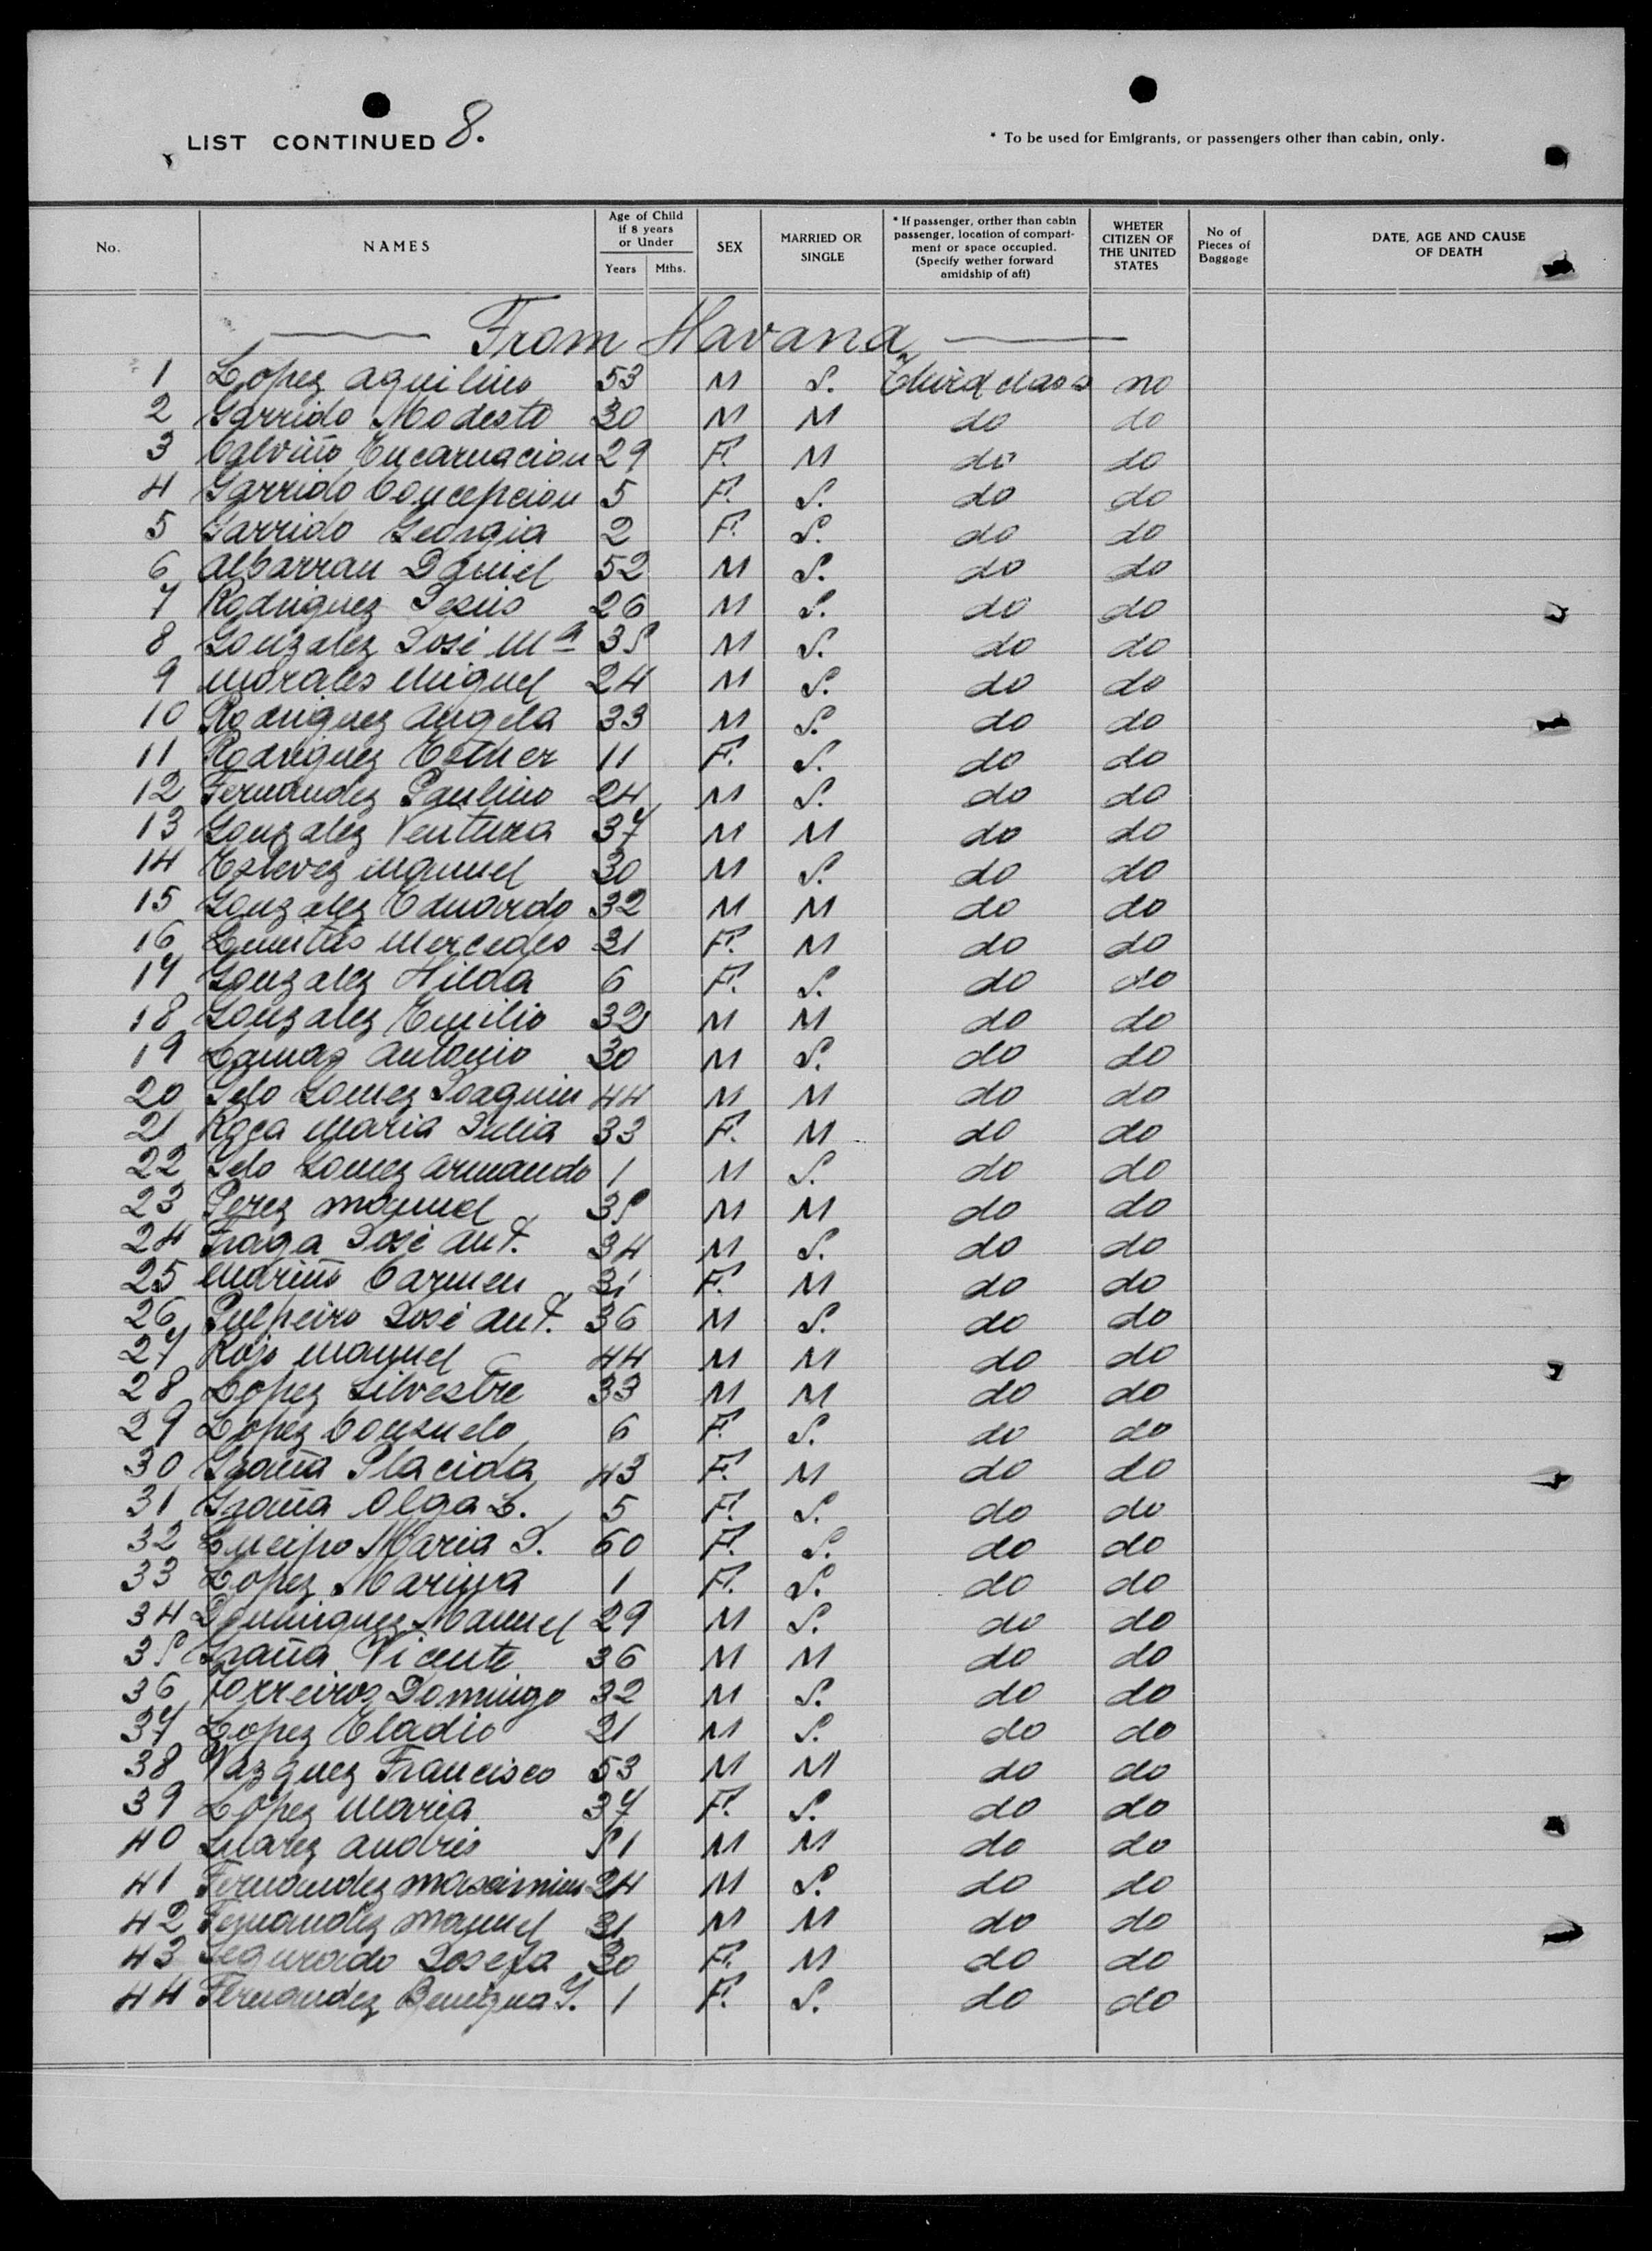 LIST CONTINUED 8.
* To be used for Emigrants, or passengers other than cabin, only.
No. NAMES Age of Child if 8 years or Under Years Mths. SEX MARRIED OR SINGLE * If passenger, orther than cabin passenger, location of compartment or space occupied. (Specify wether forward amidship of aft) WHETER CITIZEN OF THE UNITED STATES No of Pieces of Baggage DATE, AGE AND CAUSE OF DEATH
From Havana
1 Lopez Aquilino 53 M S. Third class no
2 Garrido Modesto 30 M M do do
3 Calviño Encarnacion 29 F. M do do
4 Garrido Concepcion 5 F. S. do do
5 Garrido Georgia 2 F. S. do do
6 Albarran Daniel 52 M S. do do
7 Rodriguez Jesus 26 M S. do do
8 Gonzalez José Mª 35 M S. do do
9 Morales Miguel 24 M S. do do
10 Rodriguez Angela 33 M S. do do
11 Rodriguez Esther 11 F. S. do do
12 Fernandez Paulino 24 M S. do do
13 Gonzalez Ventura 37 M M do do
14 Estevez Manuel 30 M S. do do
15 Gonzalez Eduardo 32 M M do do
16 Mercedes 31 F. M do do
17 Gonzalez Hilda 6 F. S. do do
18 Gonzalez Emilio 32 M M do do
19 Lamas Antonio 30 M S. do do
20 Gomez Joaquin 44 M M do do
21 Roca Maria Julia 33 F. M do do
22 Gomez Armando 1 M S. do do
23 Perez Manuel 35 M M do do
24 Fraga José Ant. 34 M S. do do
25 Mariño Carmen 31 F. M do do
26 Pulpeiro José Ant. 36 M S. do do
27 Rojo Manuel 44 M M do do
28 Lopez Silvestre 33 M M do do
29 Lopez Consuelo 6 F. S. do do
30 Graña Placida 43 F. M do do
31 Graña Olga L. 5 F. S. do do
32 Maria J. 60 F. S. do do
33 Lopez Marina 1 F. S. do do
34 Dominguez Manuel 29 M S. do do
35 Graña Vicente 36 M M do do
36 Torreiros Domingo 32 M S. do do
37 Lopez Eladio 21 M S. do do
38 Vazquez Francisco 53 M M do do
39 Lopez Maria 37 F. S. do do
40 Suarez Andres 51 M M do do
41 Fernandez 24 M S. do do
42 Fernandez Manuel 31 M M do do
43 Segurado Josefa 30 F. M do do
44 Fernandez Benigna Y. 1 F. S. do do